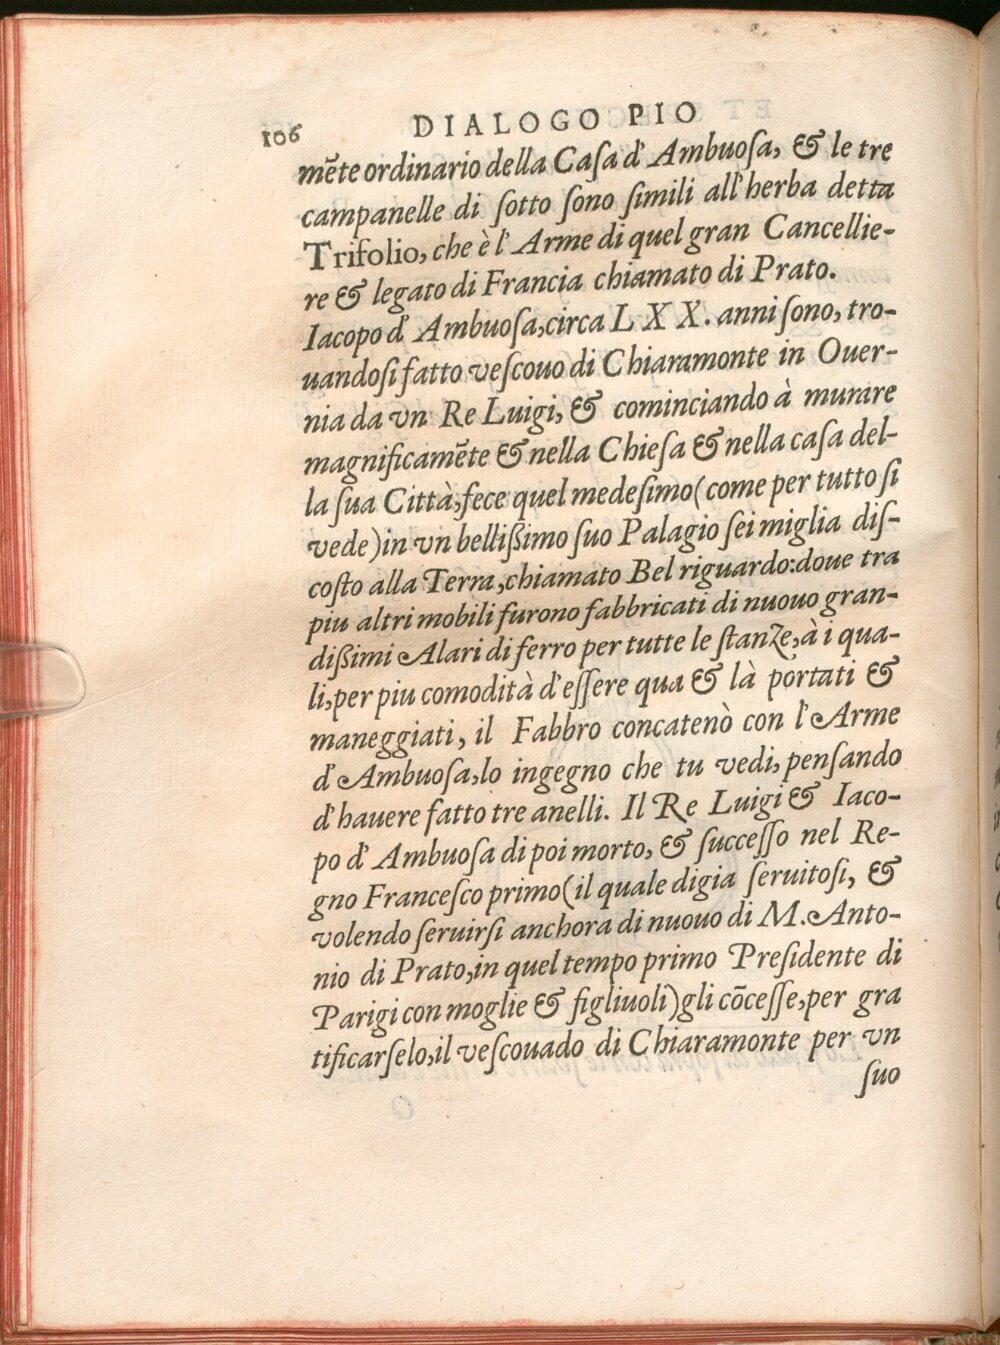 106 DIALOGO PIO
mẽte ordinario della Caſa d' Ambuoſa, & le tre
campanelle di ſotto ſono ſimili all'herba detta
Trifolio, che è l'Arme di quel gran Cancellie-
re & legato di Francia chiamato di Prato.
Iacopo d' Ambuoſa, circa L X X. anni ſono, tro-
uandoſi fatto veſcouo di Chiaramonte in Ouer-
nia da vn Re Luigi, & cominciando à murare
magnificamẽte & nella Chieſa & nella caſa del-
la ſua Città, fece quel medeſimo (come per tutto ſi
vede) in vn belliſsimo ſuo Palagio ſei miglia diſ-
coſto alla Terra, chiamato Bel riguardo: doue tra
piu altri mobili furono fabbricati di nuouo gran-
diſsimi Alari di ferro per tutte le ſtanze, à i qua-
li, per piu comodità d'eſſere qua & là portati &
maneggiati, il Fabbro concatenò con l'Arme
d'Ambuoſa, lo ingegno che tu vedi, penſando
d'hauere fatto tre anelli. Il Re Luigi & Iaco-
po d' Ambuoſa di poi morto, & ſucceſſo nel Re-
gno Franceſco primo (il quale digia ſeruitoſi, &
volendo ſeruirſi anchora di nuouo di M. Anto-
nio di Prato, in quel tempo primo Preſidente di
Parigi con moglie & figliuoli) gli cõceſſe, per gra
tificarſelo, il veſcouado di Chiaramonte per vn
ſuo